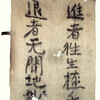 進者往生極
退者无間地